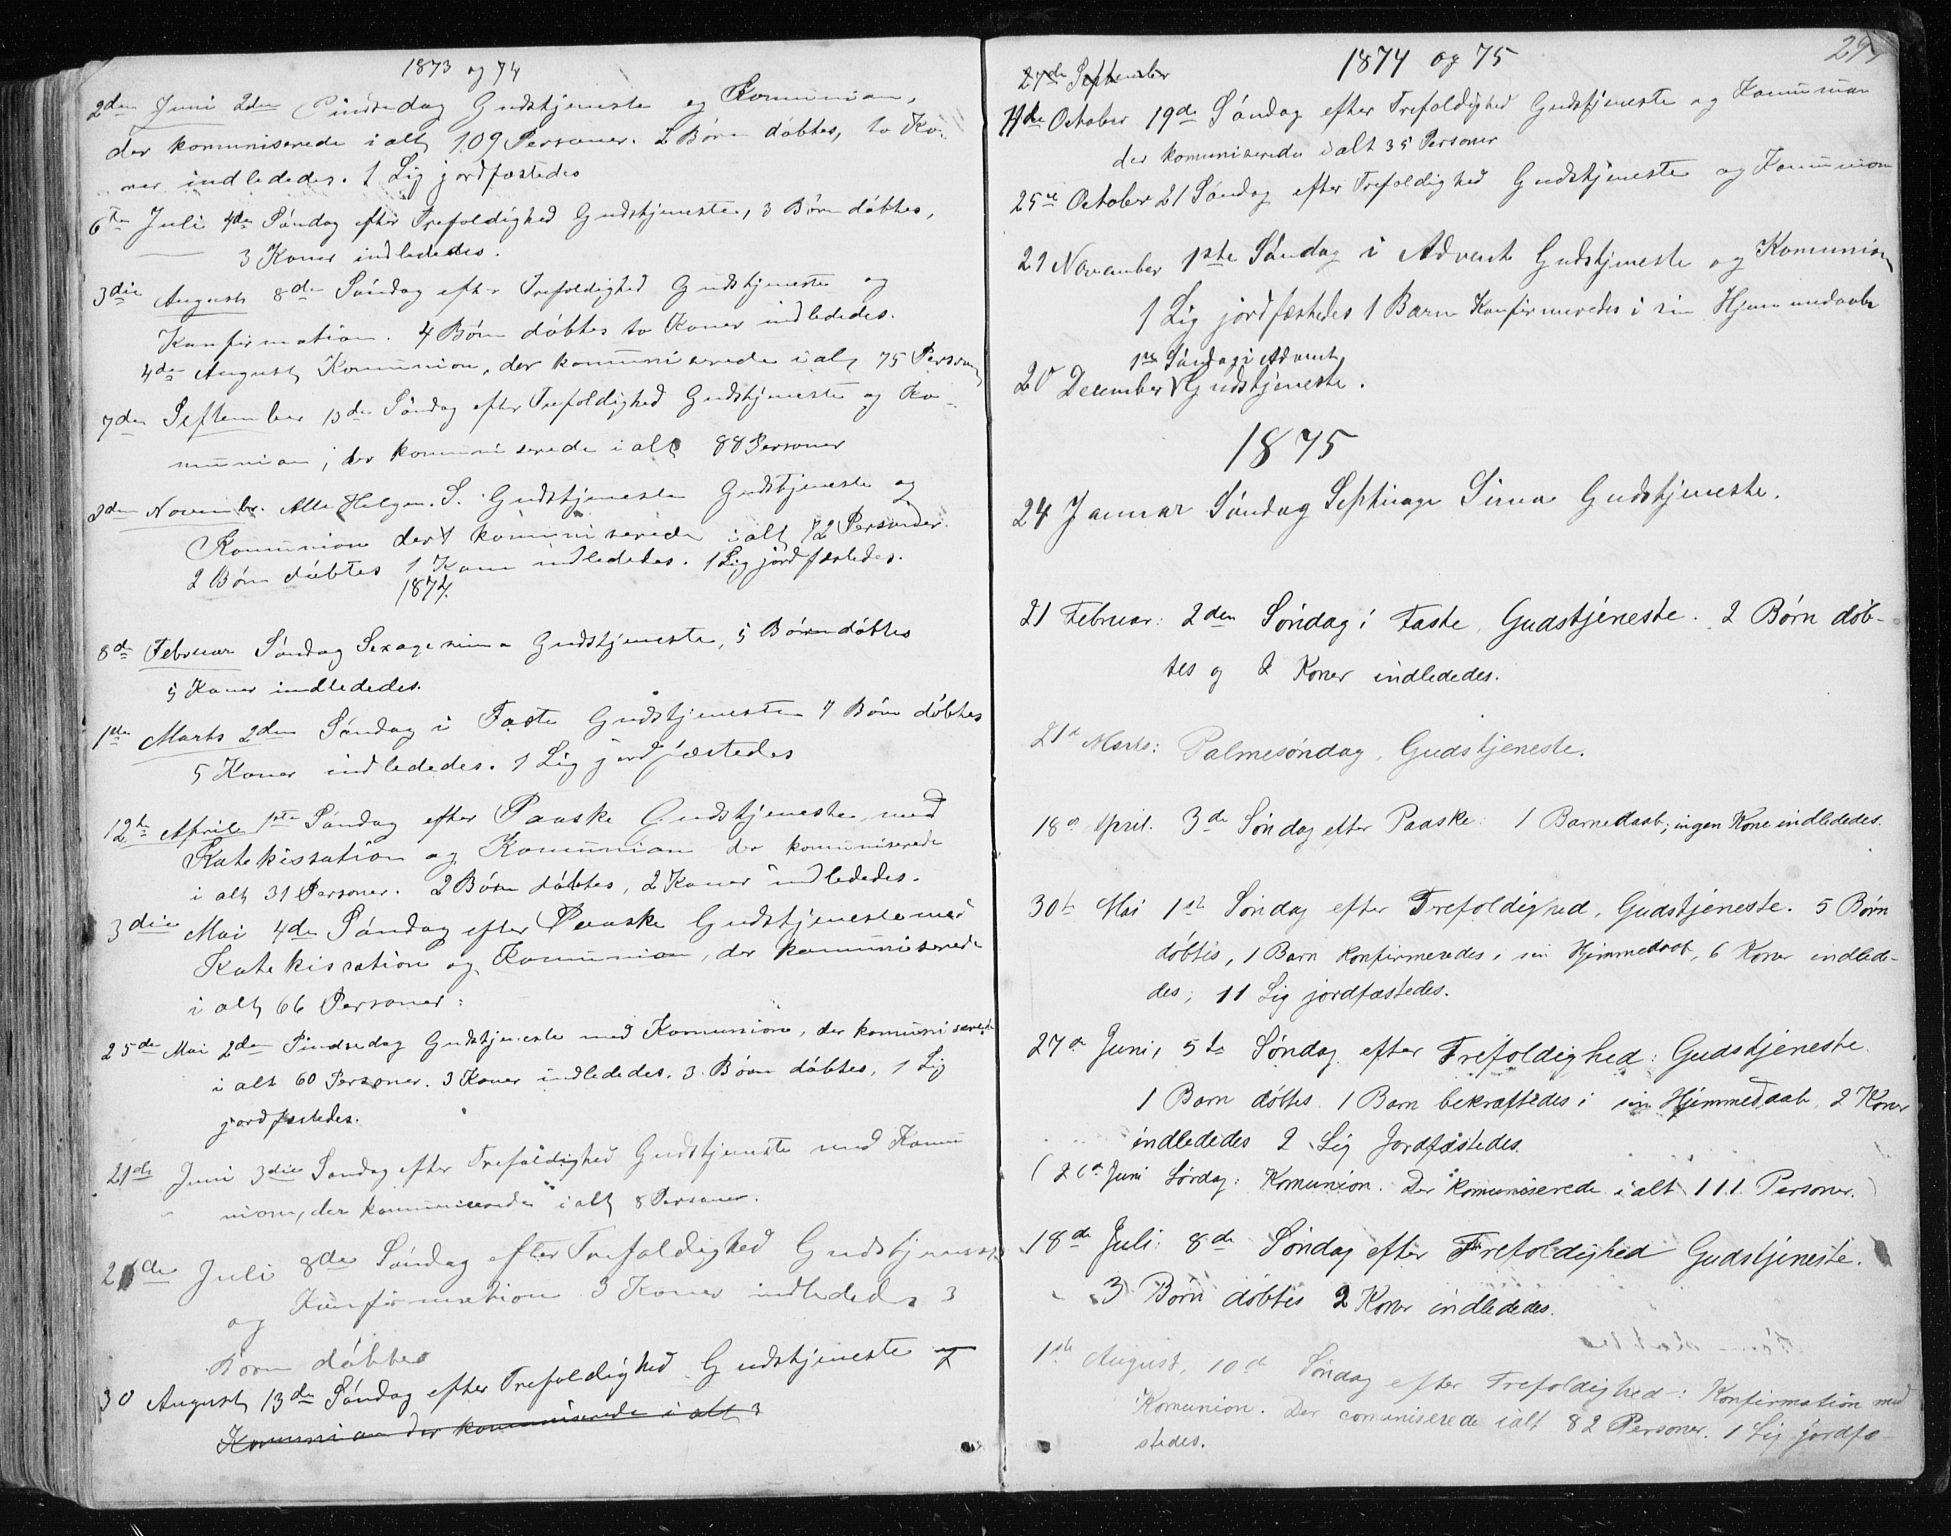 1873 og 74
2den Juni 2den Pindsedag Gudstjeneste og Komunion,
der komuniserede i alt 109 Personer. 2 Børn døbtes, to Ko-
ner indlededes. 1 Lig jordfæstedes
6te Juli 4de Søndag efter Trefoldighed Gudstjeneste, 3 Børn døbtes,
3 Koner indlededes.
3die August 8de Søndag efter Trefoldighed Gudstjeneste og
Konfirmation. 4 Børn døbtes to Koner indlededes.
4de August Komunion, der komuniserede i alt 75 Personer
7de September 13de Søndag efter Trefoldighed Gudstjeneste og Ko-
munion, der komuniserede i alt 88 Personer
2den Novembr. Alle Helgen. S. Gudstjeneste Gudstjeneste og
Komunion der komuniserede i alt 72 Personer
2 Børn døbtes 1 Kone indlededes. 1 Lig jordfæstedes.
1874.
8de Februar Søndag Sexagesima Gudstjeneste, 5 Børn døbtes
5 Koner indlededes.
1ste Marts 2den Søndag i Faste Gudstjeneste 4 Børn døbtes
5 Koner indlededes. 1 Lig jordfæstedes
12te April 1ste Søndag efter Paaske Gudstjeneste med
Katekisation og Komunion der komuniserede
i alt 31 Personer. 2 Børn døbtes, 2 Koner indlededes.
3die Mai 4de Søndag efter Paaske Gudstjeneste med
Katekisation og Komunion, der komuniserede
i alt 66 Personer.
25de Mai 2den Pindsedag Gudstjeneste med Komunion, der komuniserede
i alt 60 Personer. 3 Koner indlededes. 3 Børn døbtes, 1 Lig
jordfæstedes.
21de Juni 3die Søndag efter Trefoldighed Gudstjeneste med Komu
nion, der komuniserede i alt 8 Personer.
26de Juli 8de Søndag efter Trefoldighed Gudstjeneste
og Konfirmation 3 Koner indlededes 3
Børn døbtes
30 August 13de Søndag efter Trefoldighed Gudstjeneste og
Komunion der komuniserede i alt 3
1874 og 75
27de September
11te October 19de Søndag efter Trefoldighed Gudstjeneste og Komunion
der komuniserede i alt 35 Personer
25de October 21 Søndag efter Trefoldighed Gudstjeneste og Komunion
29 November 1ste Søndag i Advent Gudstjeneste og Komunion
1 Lig jordfæstedes 1 Barn Konfirmeredes i sin Hjemmedaab
1ste Søndag i Advent
20 December Gudstjeneste.
1875
24 Januar Søndag Septuage Sima Gudstjeneste.
21 Februar: 2den Søndag i Faste, Gudstjeneste. 2 Børn døb-
tes og 2 Koner indlededes.
21d Marts: Palmesøndag, Gudstjeneste.
18d April. 3de Søndag efter Paaske: 1 Barnedaab; ingen Kone indlededes.
30te Mai 1ste Søndag efter Trefoldighed, Gudstjeneste. 5 Børn
døbtes, 1 Barn konfirmeredes i sin Hjemmedaab, 6 Koner indlede-
des; 11 Lig jordfæstedes.
27d Juni, 5te Søndag efter Trefoldighed: Gudstjeneste.
1 Barn døbtes. 1 Barn bekræftedes i sin Hjemmedaab, 2 Koner
indlededes 2 Lig Jordfæstedes.
(26d Juni Lørdag: Komunion. Der komuniserede i alt 111 Personer.)
18de Juli: 8de Søndag efter Trefoldighed Gudstjeneste.
3 Børn døbtes 2 Koner indlededes.
1ste August, 10de Søndag efter Trefoldighed: Konfirmation med
Komunion. Der comuniserede i alt 82 Personer. 1 Lig jordfæ-
stedes.